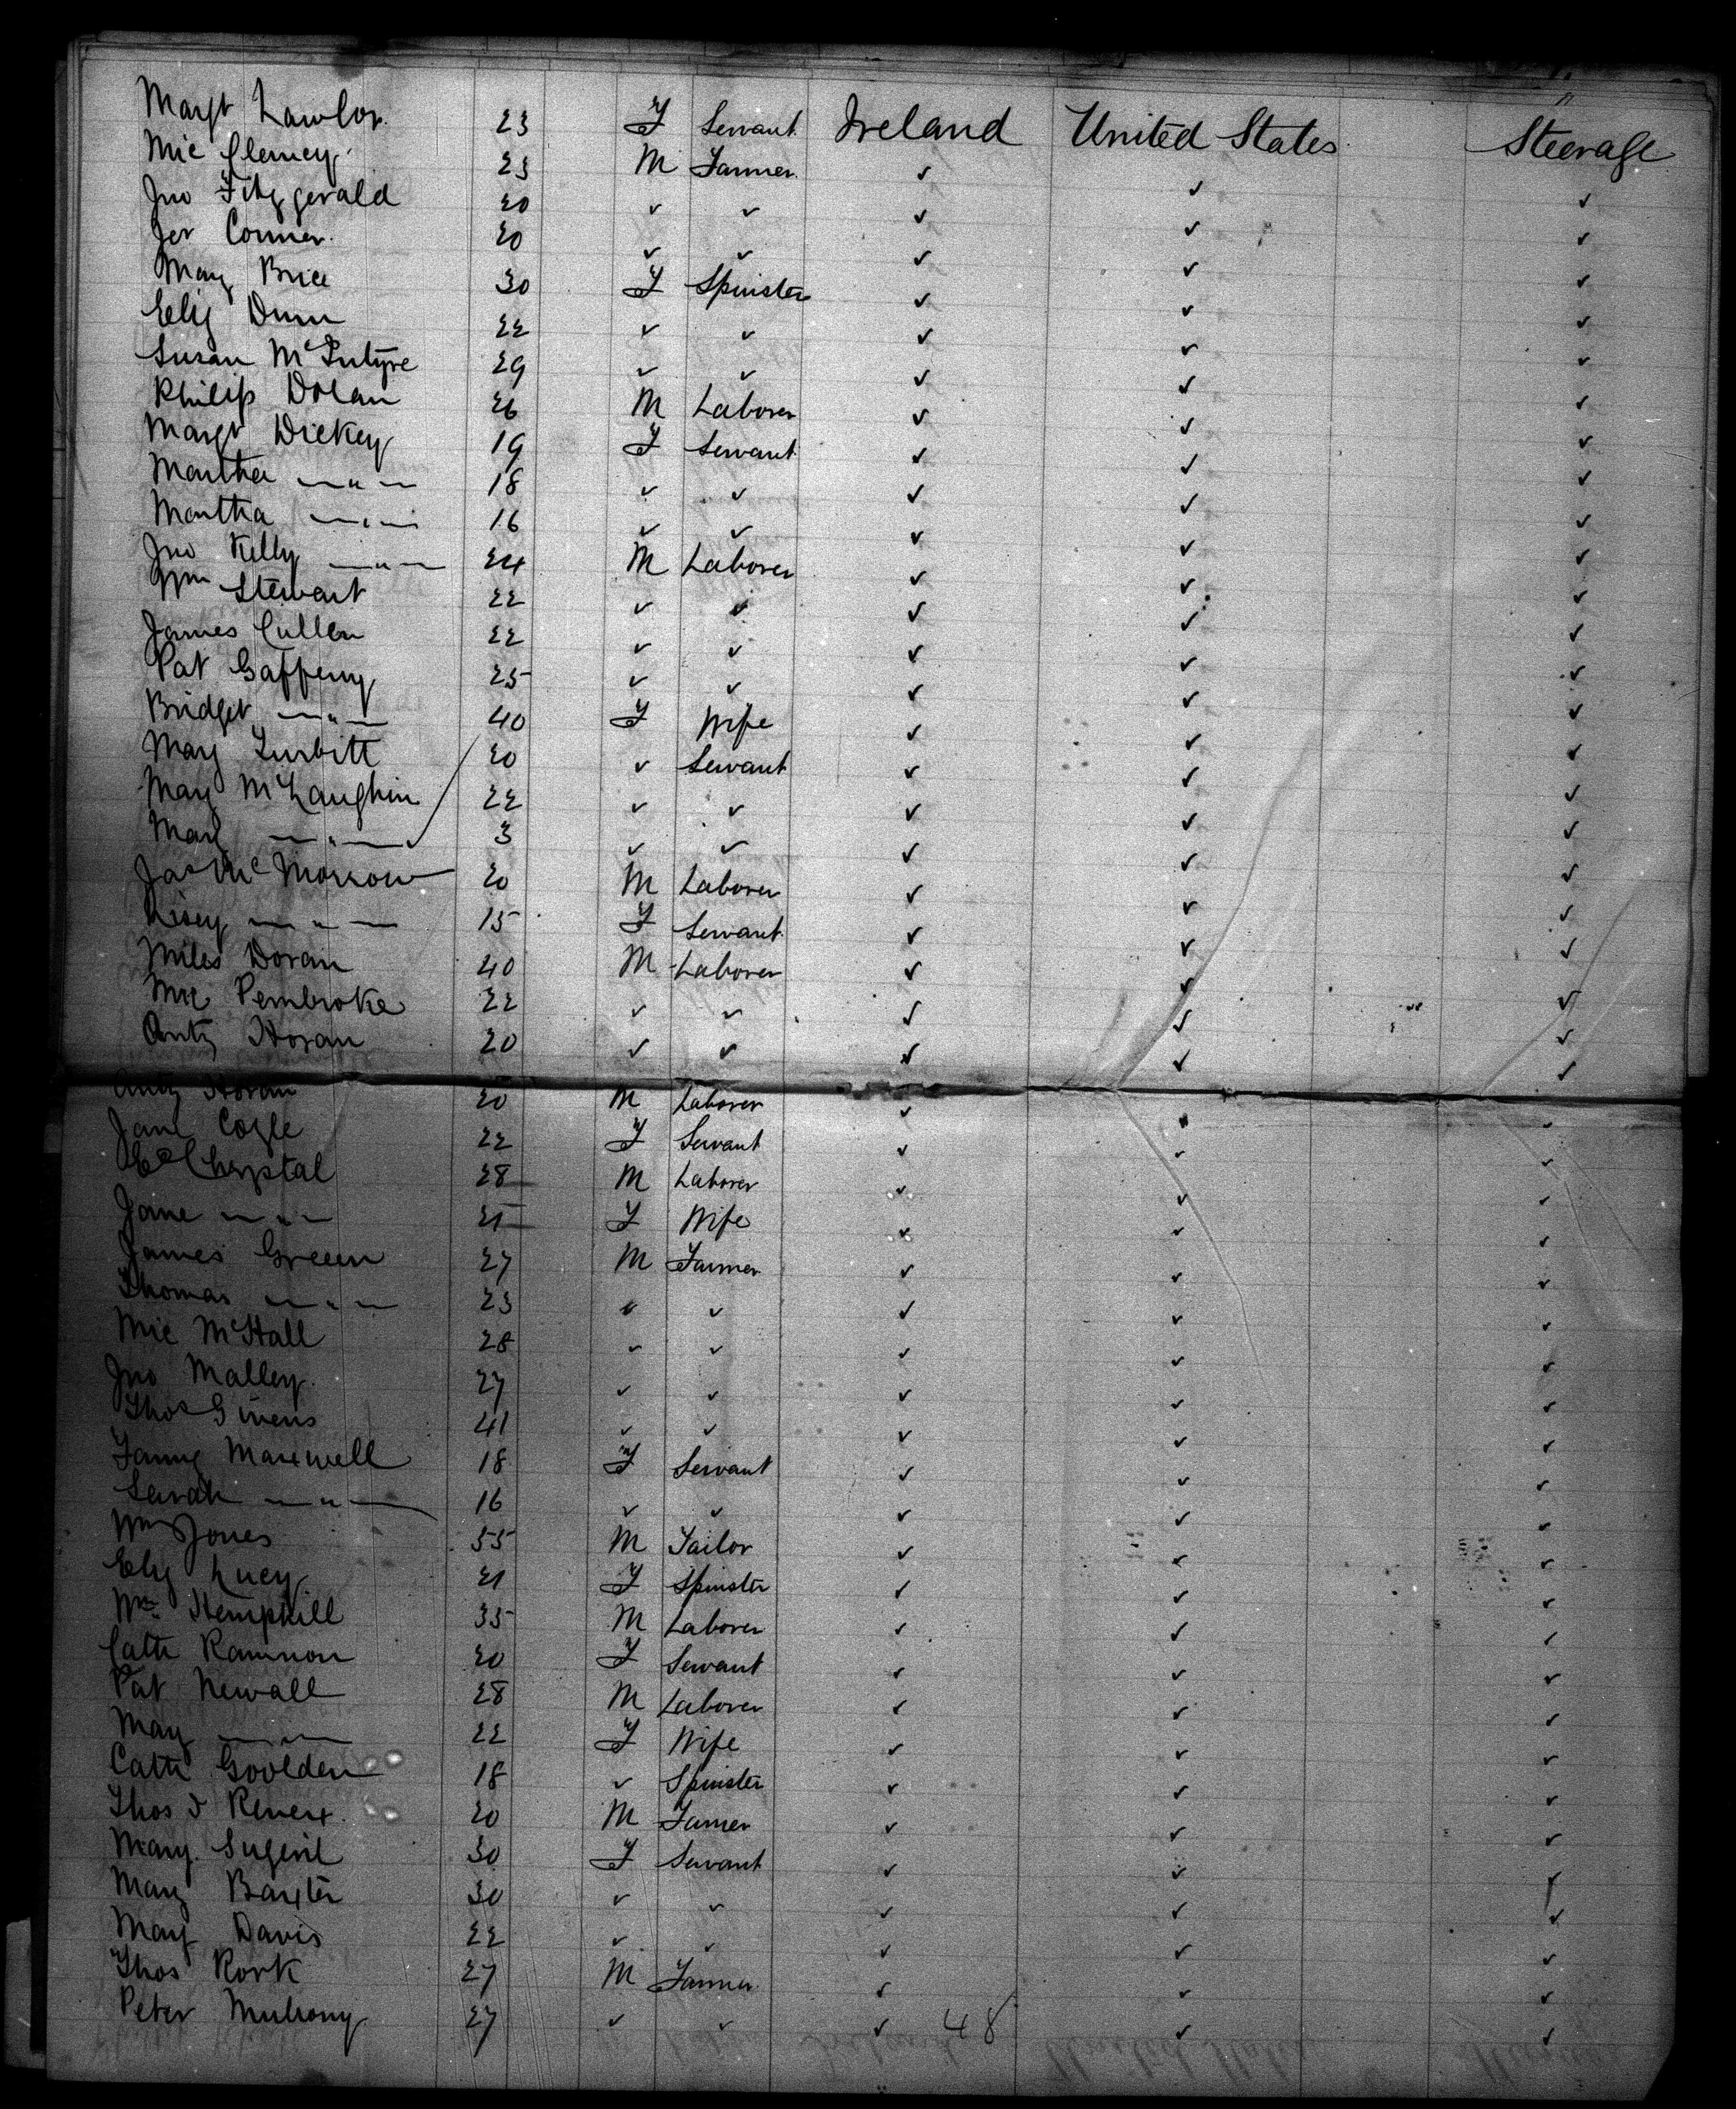 Margt Lawlor 23 F Servant Ireland United States Steerage
Mic Clemey 23 M Farmer ✓ ✓ ✓
Jno Fitzgerald 20 ✓ ✓ ✓ ✓ ✓
Jer Conner 20 ✓ ✓ ✓ ✓ ✓
Mary Brice 30 F Spinster ✓ ✓ ✓
Eliz Dunn 22 ✓ ✓ ✓ ✓ ✓
Susan McIntyre 29 ✓ ✓ ✓ ✓ ✓
Philip Dolan 26 M Laborer ✓ ✓ ✓
Margt Dickey 19 F Servant ✓ ✓ ✓
Martha — " — 18 ✓ ✓ ✓ ✓ ✓
Martha — " — 16 ✓ ✓ ✓ ✓ ✓
Jno Kelly — " — 24 M Laborer ✓ ✓ ✓
Wm Stewart 22 ✓ ✓ ✓ ✓ ✓
James Cullen 22 ✓ ✓ ✓ ✓ ✓
Pat Gaffeny 25 ✓ ✓ ✓ ✓ ✓
Bridget — " — 40 F Wife ✓ ✓ ✓
Mary Turbitt 20 ✓ Servant ✓ ✓ ✓
Mary McLaughin 22 ✓ ✓ ✓ ✓ ✓
Mary — " — 3 ✓ ✓ ✓ ✓ ✓
Jas McMorrow 20 M Laborer ✓ ✓ ✓
Lisey — " — 15 F Servant ✓ ✓ ✓
Miles Doran 40 M Laborer ✓ ✓ ✓
Mic Pembroke 22 ✓ ✓ ✓ ✓ ✓
Anty Horan 20 ✓ ✓ ✓ ✓ ✓
Anty Horan 20 M Laborer ✓ ✓ ✓
Jane Cogle 22 F Servant ✓ ✓ ✓
Ed Chrystal 28 M Laborer ✓ ✓ ✓
Jane — " — 21 F Wife ✓ ✓ ✓
James Greeen 27 M Farmer ✓ ✓ ✓
Thomas — " — 23 ✓ ✓ ✓ ✓ ✓
Mic McHall 28 ✓ ✓ ✓ ✓ ✓
Jno Malley 27 ✓ ✓ ✓ ✓ ✓
Thos Givens 41 ✓ ✓ ✓ ✓ ✓
Fanny Maxwell 18 F Servant ✓ ✓ ✓
Sarah — " — 16 ✓ ✓ ✓ ✓ ✓
Wm Jones 55 M Tailor ✓ ✓ ✓
Eliz Lucy 21 F Spinster ✓ ✓ ✓
Wm Hemphill 35 M Laborer ✓ ✓ ✓
Cath Rannon 20 F Servant ✓ ✓ ✓
Pat Newall 28 M Laborer ✓ ✓ ✓
Mary — " — 22 F Wife ✓ ✓ ✓
Cath Goolden 18 ✓ Spinster ✓ ✓ ✓
Thos 20 M Farmer ✓ ✓ ✓
Mary 30 F Servant ✓ ✓ ✓
Mary Baxter 30 ✓ ✓ ✓ ✓ ✓
Mary Davis 22 ✓ ✓ ✓ ✓ ✓
Thos Rork 27 M Farmer ✓ ✓ ✓
Peter Mulrony 27 ✓ ✓ ✓ 48 ✓ ✓